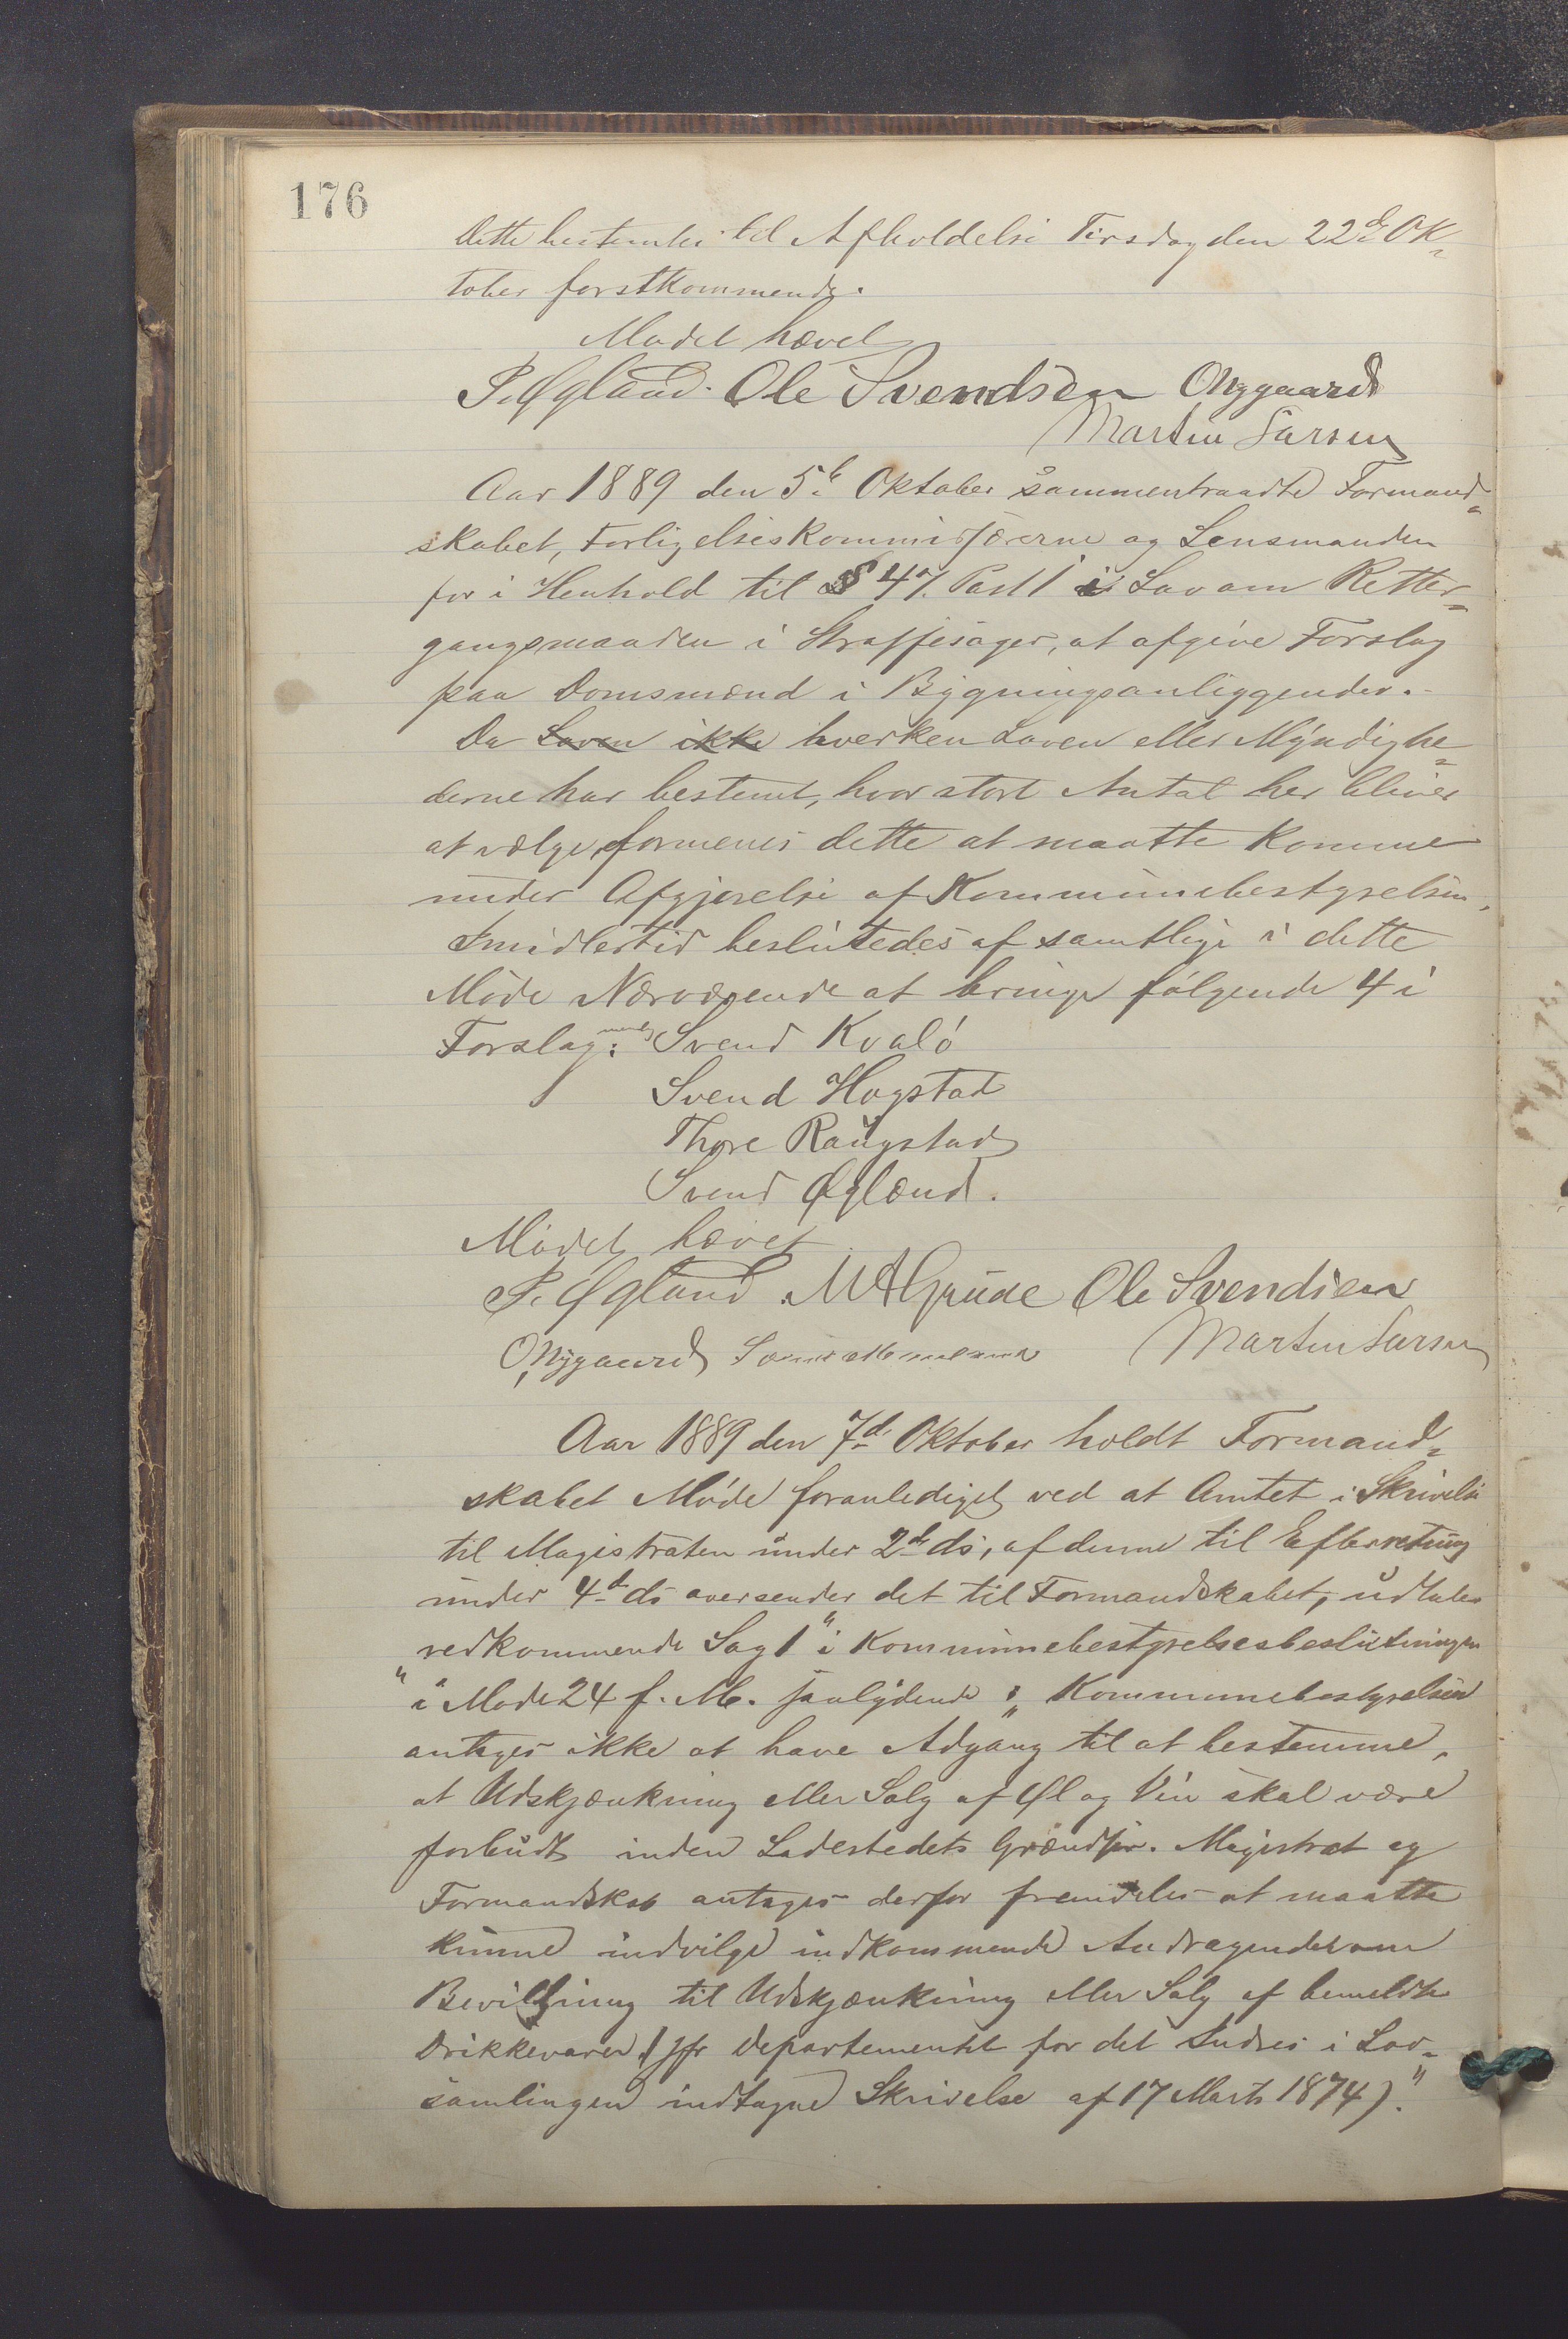 176
Dette bestemtes til Afholdelse Tirsdag den 22de Ok-
tober førstkommende.
Mødet hævet
P. Øgland. Ole Svendsen ONygaard
Martin Larsen
Aar 1889 den 5te Oktober sammentraadte Formand-
skabet, Forligelseskommissærerne og Lensmanden
for i Henhold til § 47. Post 1 i Lov om Retter-
gangsmaaden i Straffesager, at afgive Forslag
paa Domsmænd i Bygningsanliggender.
Da Loven ikke hverken Loven eller Myndighe-
derne har bestemt, hvor stort Antal her bliver
at vælge, formenes dette at maatte komme
under Afgjørelse af Kommunebestyrelsen.
Imidlertid beslutedes af samtlige i dette
Møde Nærværende at bringe følgende 4 i
Forslag: Svend Kvalø
Svend Hogstad
Thore Raugstad
Svend Øglænd.
Mødet hævet
P. Øgland MAGrude Ole Svendsen
O, Nygaard Martin Larsen
Aar 1889 den 7de Oktober holdt Formand-
skabet Møde foranlediget ved at Amtet i Skrivelse
til Magistraten under 2de ds, af denne til Efterretning
under 4de ds oversender det til Formandskabet, udtaler
vedkommende Sag 1 "i Kommunebestyrelsesbeslutningen
"i Møde 24 f. M. saalydende: „Kommunebestyrelsen
antages ikke at have Adgang til at bestemme,
at Udskjænkning eller Salg af Øl og Vin skal være
forbudt inden Ladestedets Grændser. Magistrat og
Formandskab antages derfor fremdeles at maatte
kunne indvilge indkommende Andragender om
Bevillning til Udskjænkning eller Salg af bemeldte
Drikkevarer (jfr Departementet for det Indres i Lov-
samlingen indtagne Skrivelse af 17 Marts 1874)."